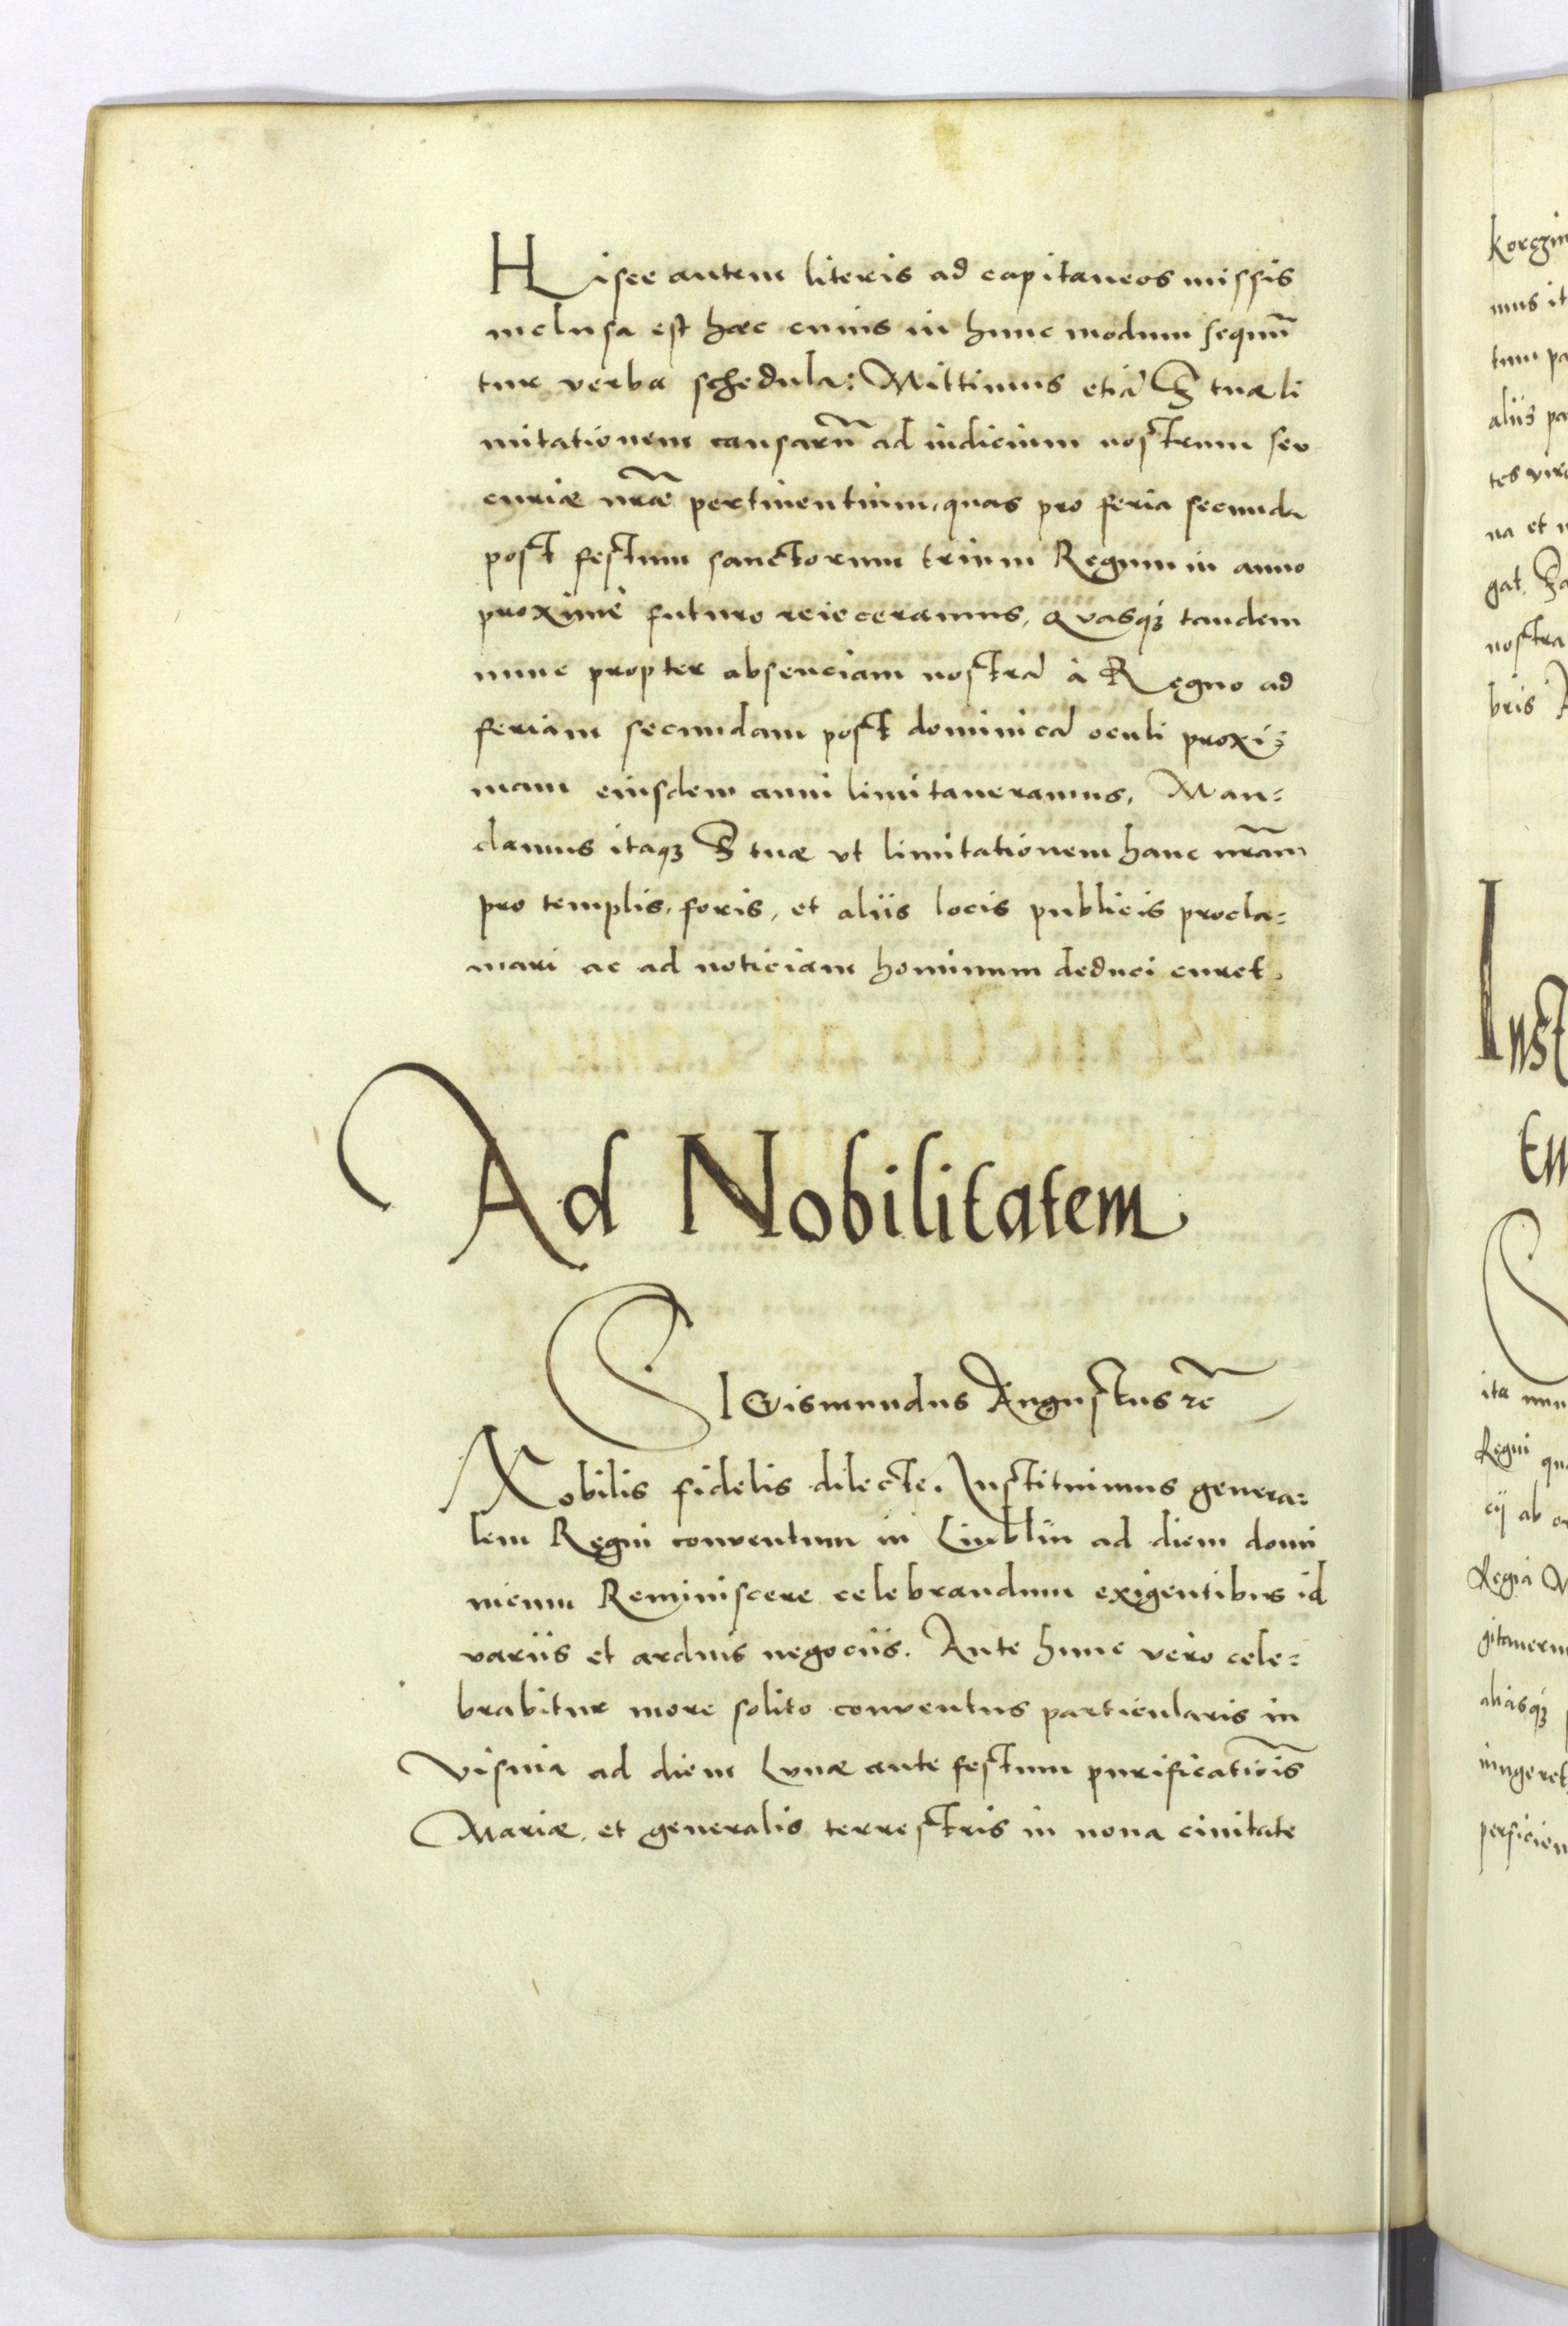 Hisce autem literis ad capitaneos missis
inclusa est hæc cuius in hunc modum sequũ
tur verba schedula: Mittimus etiã S tuæ li
mitationem causarũ ad iudicium nostrum seu
curiæ nrãe pertinentium, quas pro feria secunda
post festum sanctorum trium Regum in anno
proximè futuro reieceramus, Quasq́ꝫ tandem
nunc propter absenciam nostrã à Regno ad
feriam secundam post dominicã oculi proxi=
mam eiusdem anni limitaueramus, Man=
damus itaqꝫ S tuæ vt limitationem hanc nrãm
pro templis, foris, et aliis locis publicis procla=
mari ac ad noticiam hominum deduci curet.
Ad Nobilitatem
SIGismundus Augustus rc̃
Nobilis fidelis dilecte. Instituimus genera=
lem Regni conventum in Liublin ad diem domi
nicum Reminiscere celebrandum exigentibus id
variis et arduis negociis. Ante hunc vero cele=
brabitur more solito conventus particularis in
Visnia ad diem Lunæ ante festum purificatiõis
Mariæ, et generalis terrestris in noua ciuitate
korczin
mus it
tum pa
aliis pa
tes vir
na et
gat. S
nostra
bris
Inst
ita nun
Regni qu
cij ab
Regia
gitaueru
aliasq́ꝫ
iungeret
perficien